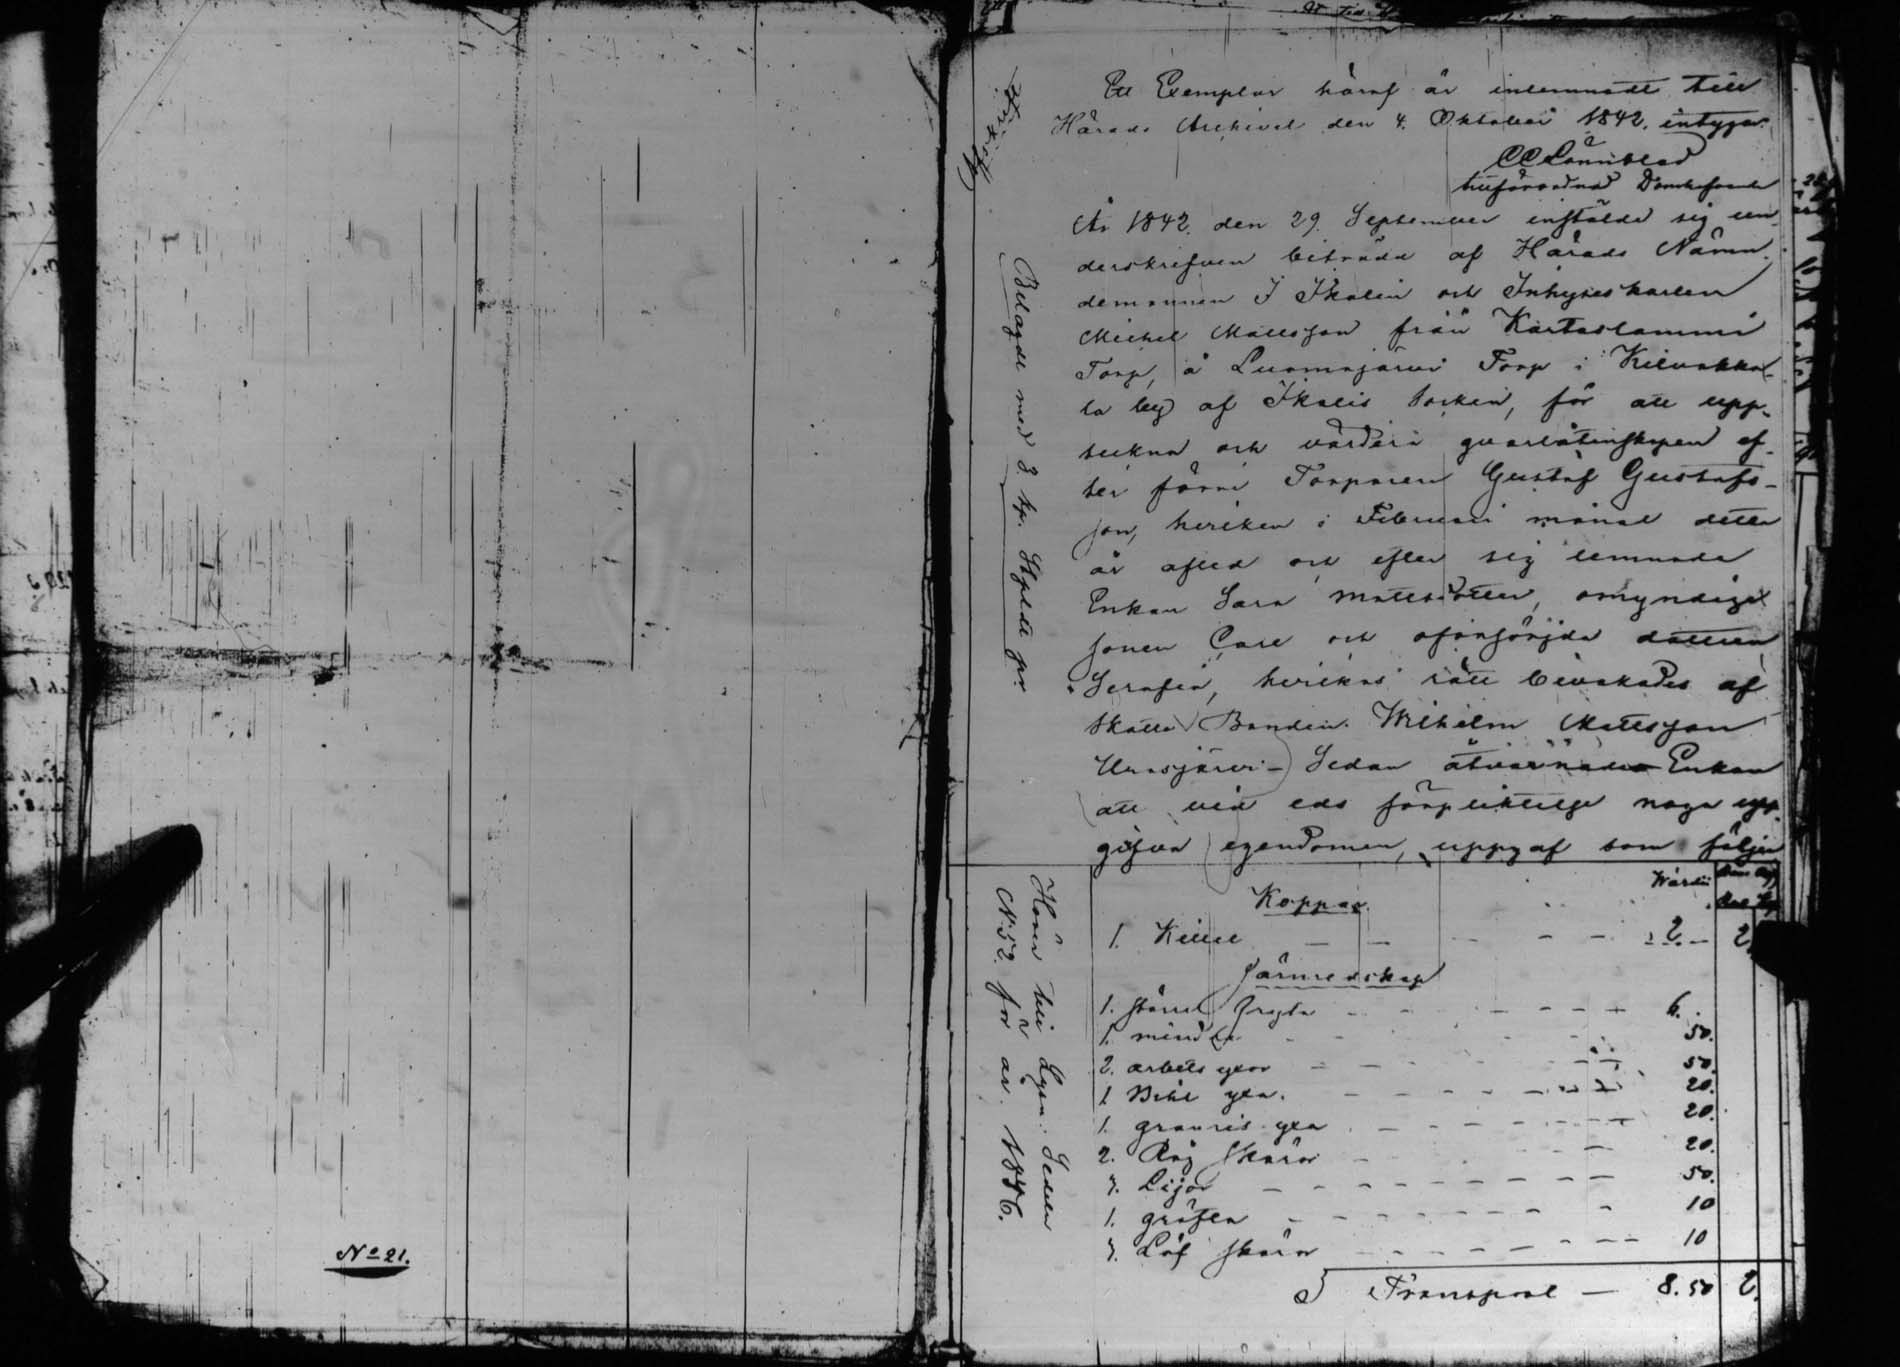 No 21.
Ett Exemplar häraf är inlemnadt till
Härads Archivet den 4. Oktober 1842. intygar.
CC Lönnblad
tillförordnad Domhafvande
Afskrift
År 1842. den 29. September instälde sig un-
derskrifven biträdd af Härads Nämn-
demannen J Ikalin och Inhyseskarlen
Michel Mattsson från Kartaslammi
Torp, å Luomajärvi Torp i Kilvakka-
la by af Ikalis Socken, för att upp-
teckna och värdera qvarlåtenskapen ef-
ter förre Torparen Gustaf Gustafs-
son, hvilken i Februari månad detta
år afled och efter sig lemnade
Enkan Sara Mattsdotter, omyndige
sonen Carl och oförsörjda dottren
Serafia, hvilkas rätt bevakades af
Skatte Bonden Wilhelm Mattsson
Sedan åtvarnades Enkan
att vid eds förpliktelse noga upp-
gifva egendomen, uppgaf som följer
Belagdt med 3. kp. Stpldt ppr
Hörer till Lysn. Sedeln
No 52. för år 1856.
Koppar. Värde
1. Kittel 2. 2.
Järnredskap
1. större Gryta 6.
1. mindre 50.
2. arbets yxor 50.
1 Bihl yxa. 20.
1. granris yxa 20.
2. Råg skäror 20.
3. Lijor 50.
1. gräfta 10
3. Löf skäror 10
Transport 8.50 2.